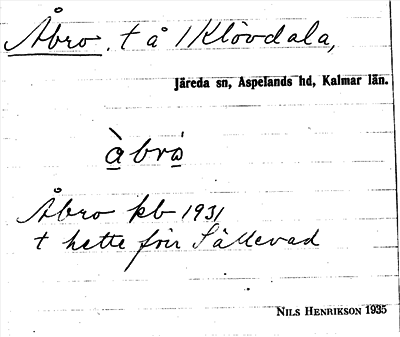 Åbro, t å / Klövdala,
Järeda sn, Aspelands hd, Kalmar län.
à brò
Åbro kb 1931
t hette förr Sällevad
NILS HENRIKSON 1935